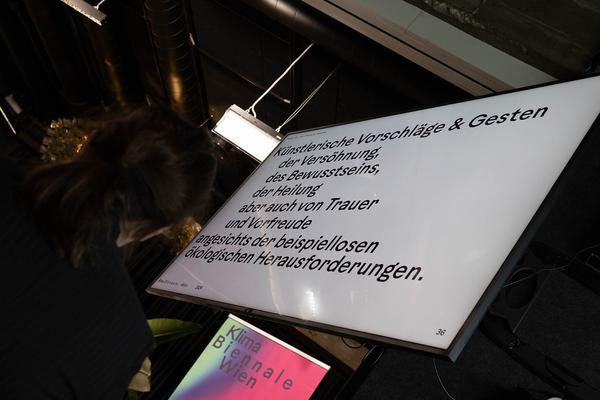 Künstlerische Vorschläge & Gesten
der Versöhnung,
des Bewusstseins,
der Heilung
aber auch von Trauer
und Vorfreude
angesichts der beispiellosen
ökologischen Herausforderungen.
36
Klima
Biennale
Wien